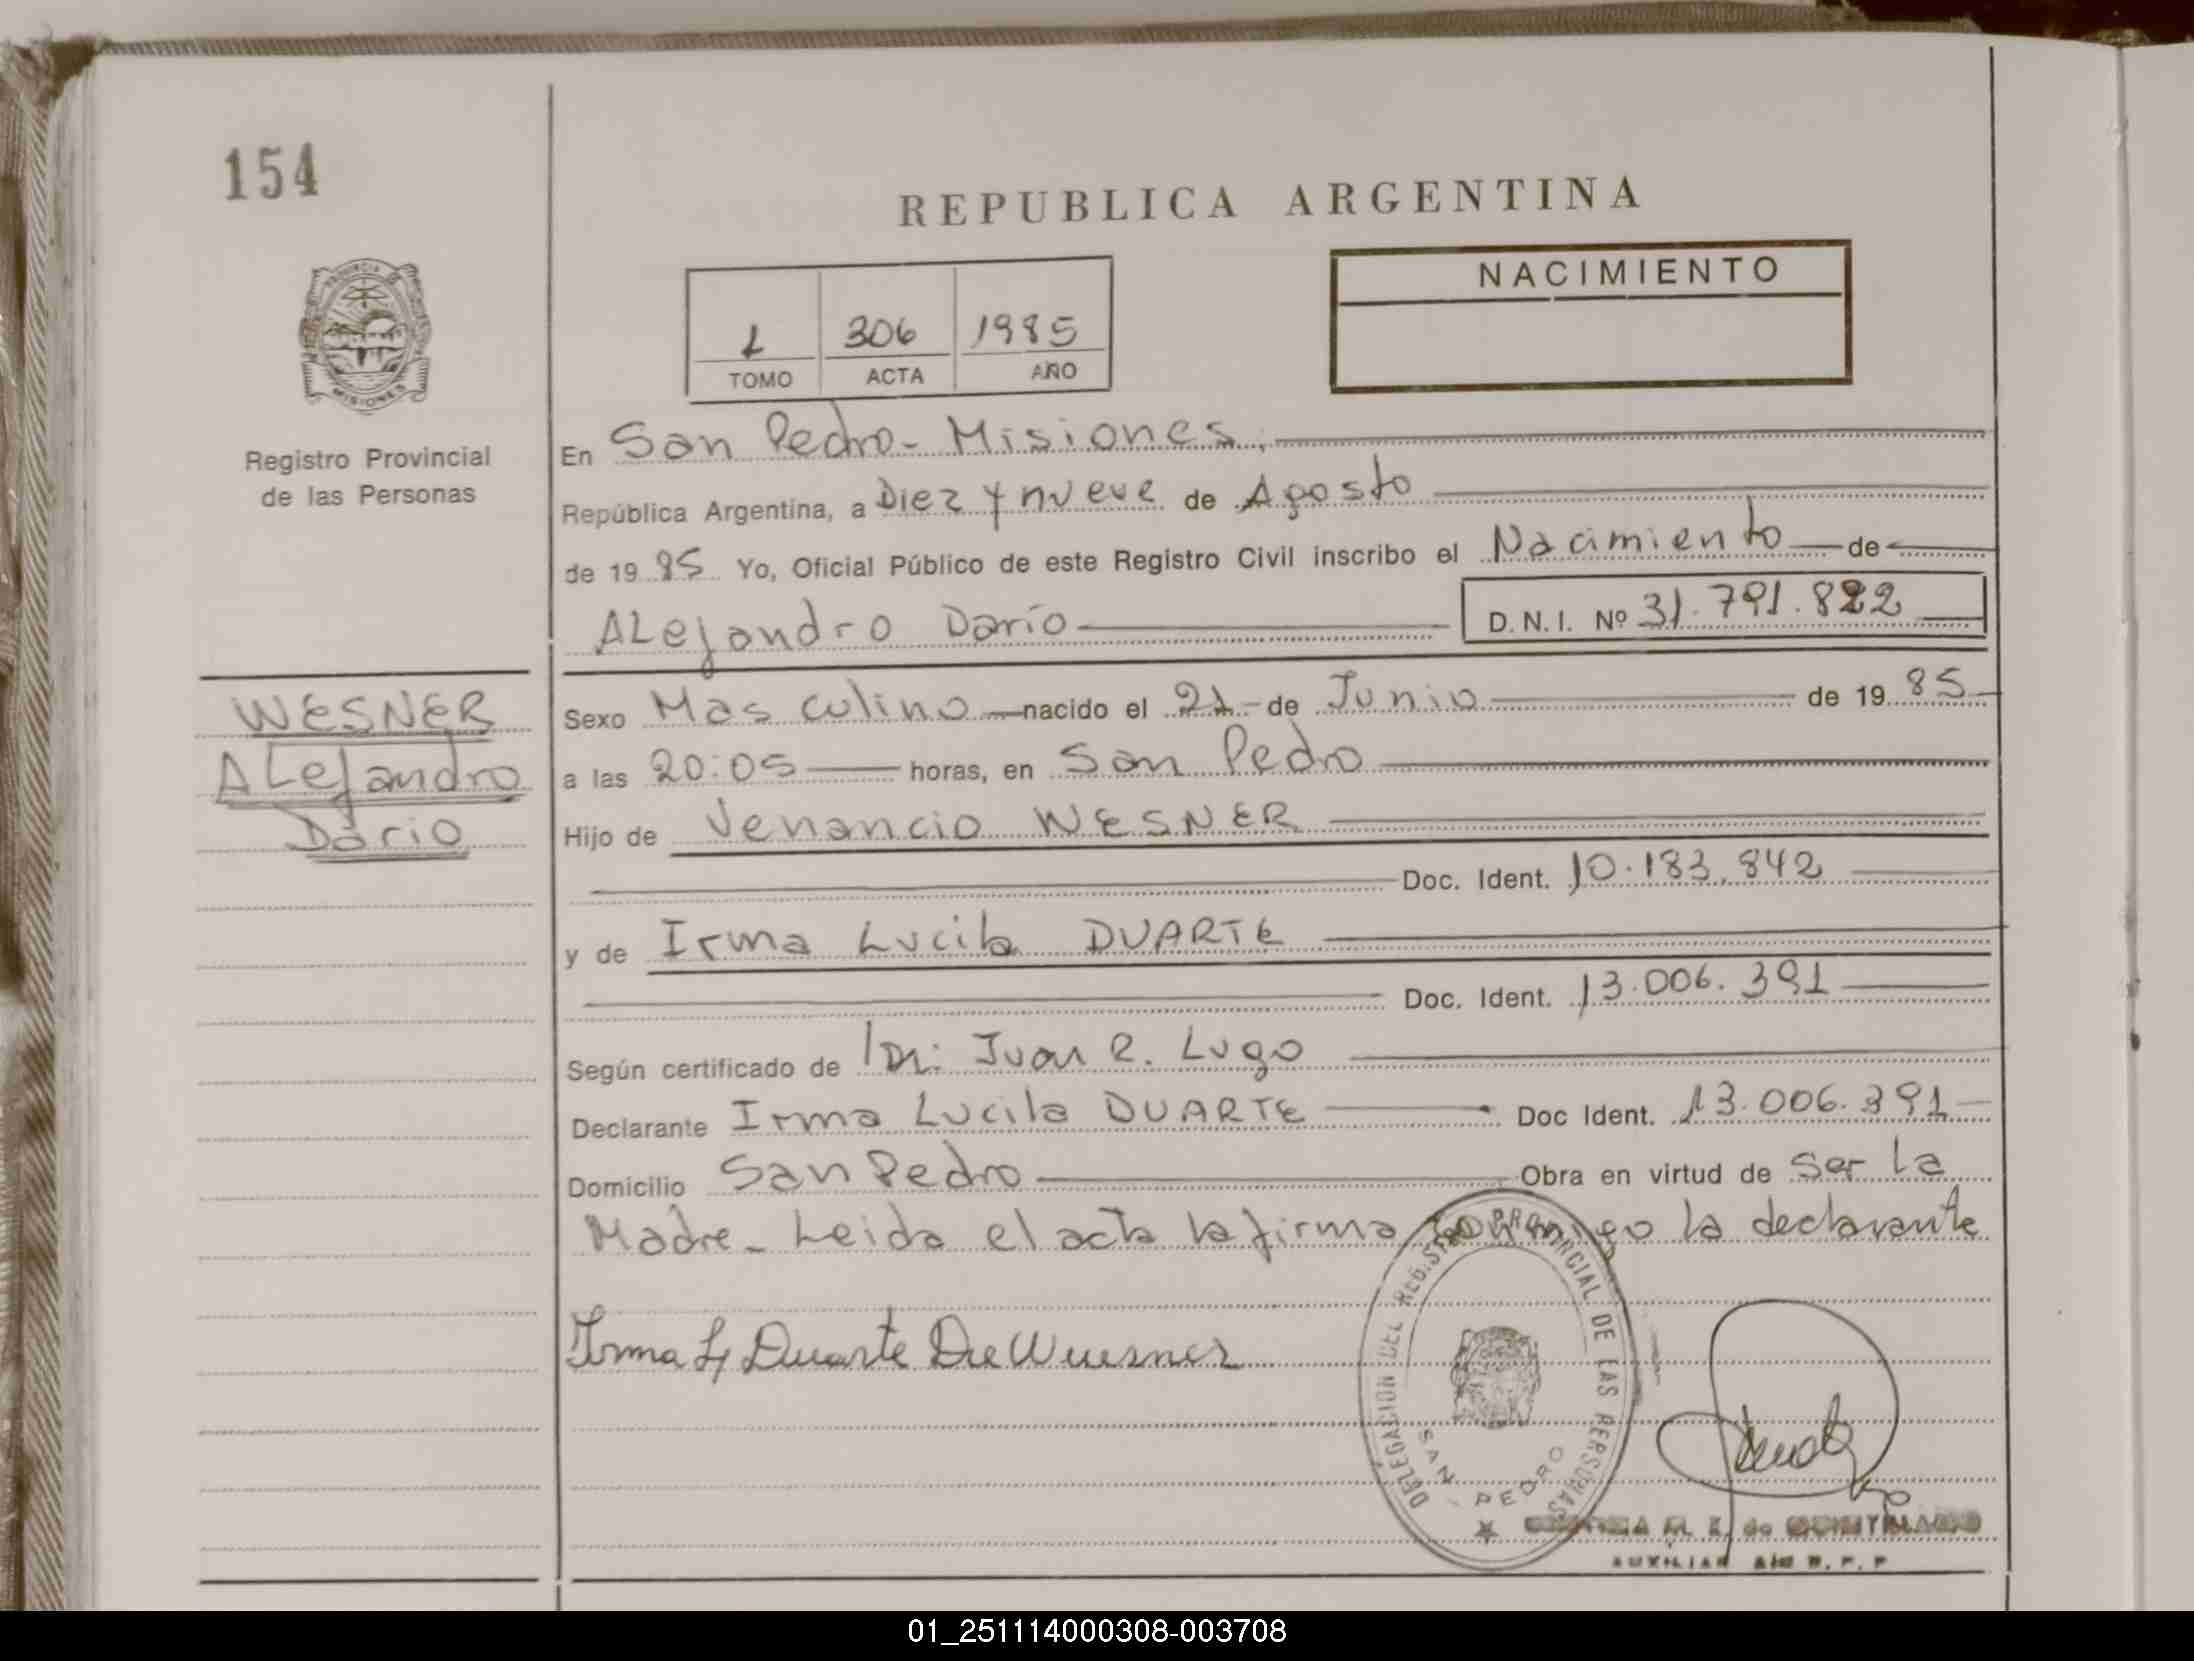 154
REPUBLICA ARGENTINA
PROVINCIA DE MISIONES
Registro Provincial
de las Personas
1 306 1985
TOMO ACTA AÑO
NACIMIENTO
En San Pedro - Misiones,
República Argentina, a Diez y nueve de Agosto
de 19 85 Yo, Oficial Público de este Registro Civil inscribo el Nacimiento de
ALejandro Darío D.N.I. Nº 31.791.822
WESNER
ALejandro
Darío
Sexo Masculino nacido el 21 de Junio de 19 85
a las 20:05 horas, en San Pedro
Hijo de Venancio WESNER
Doc. Ident. 10.183.842
y de Irma Lucila DUARTE
Doc. Ident. 13.006.391
Según certificado de Dr. Juan R. Lugo
Declarante Irma Lucila DUARTE Doc Ident. 13.006.391
Domicilio San Pedro Obra en virtud de ser la
Madre - Leida el acta la firma conmigo la declarante
Irma L Duarte De Wuesner
DELEGACION DEL REGISTRO PROVINCIAL DE LAS PERSONAS
SAN PEDRO
M. de
AUXILIAR R. P. P
01_251114000308-003708